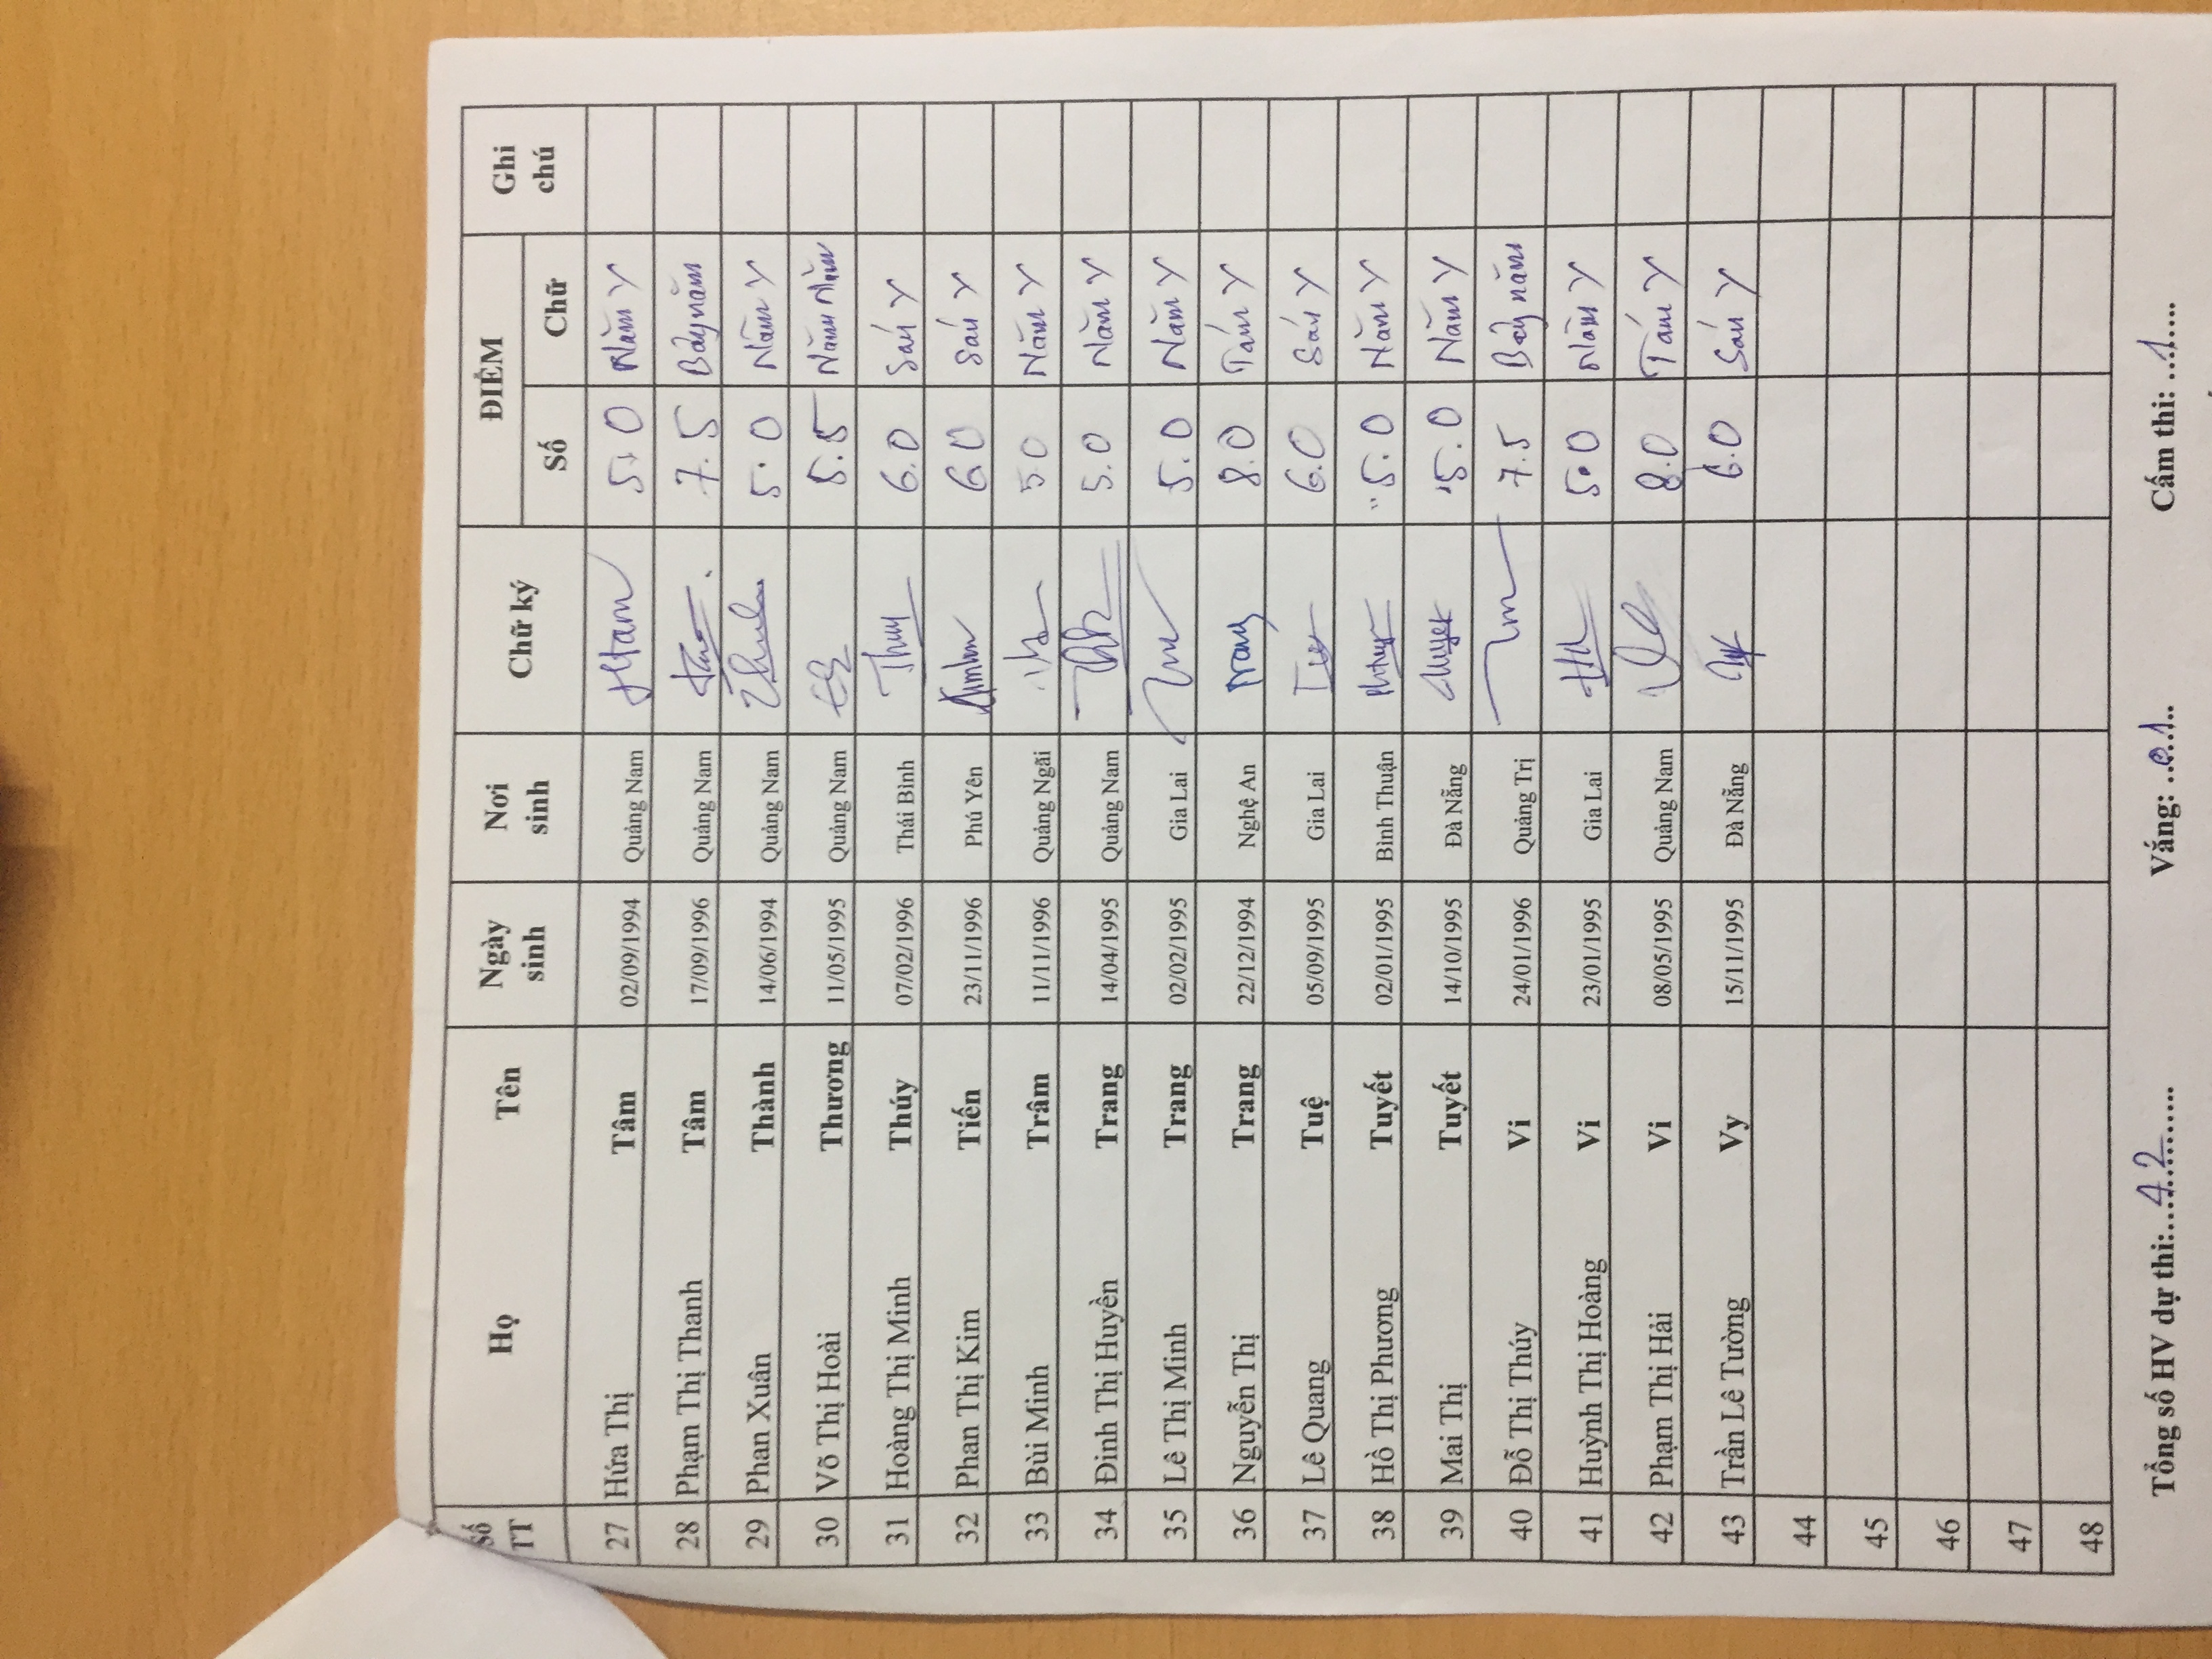 Số TT Họ Tên Ngày sinh Nơi sinh Chữ ký ĐIỂM Ghi chú
Số Chữ
27 Hứa Thị Tâm 02/09/1994 Quảng Nam 5.0 Năm Y
28 Phạm Thị Thanh Tâm 17/09/1996 Quảng Nam 7.5 Bảy năm
29 Phan Xuân Thành 14/06/1994 Quảng Nam 5.0 Năm Y
30 Võ Thị Hoài Thương 11/05/1995 Quảng Nam 5.5 Năm Năm
31 Hoàng Thị Minh Thúy 07/02/1996 Thái Bình Thuy 6.0 Sáu Y
32 Phan Thị Kim Tiến 23/11/1996 Phú Yên 6.0 Sáu Y
33 Bùi Minh Trâm 11/11/1996 Quảng Ngãi 5.0 Năm Y
34 Đinh Thị Huyền Trang 14/04/1995 Quảng Nam 5.0 Năm Y
35 Lê Thị Minh Trang 02/02/1995 Gia Lai 5.0 Năm Y
36 Nguyễn Thị Trang 22/12/1994 Nghệ An Trang 8.0 Tám Y
37 Lê Quang Tuệ 05/09/1995 Gia Lai 6.0 Sáu Y
38 Hồ Thị Phương Tuyết 02/01/1995 Bình Thuận 5.0 Năm Y
39 Mai Thị Tuyết 14/10/1995 Đà Nẵng 5.0 Năm Y
40 Đỗ Thị Thúy Vi 24/01/1996 Quảng Trị 7.5 Bảy năm
41 Huỳnh Thị Hoàng Vi 23/01/1995 Gia Lai 5.0 Năm Y
42 Phạm Thị Hải Vi 08/05/1995 Quảng Nam 8.0 Tám Y
43 Trần Lê Tường Vy 15/11/1995 Đà Nẵng 6.0 Sáu Y
44
45
46
47
48
Tổng số HV dự thi:....42....... Vắng: ..01.. Cấm thi: ...1....